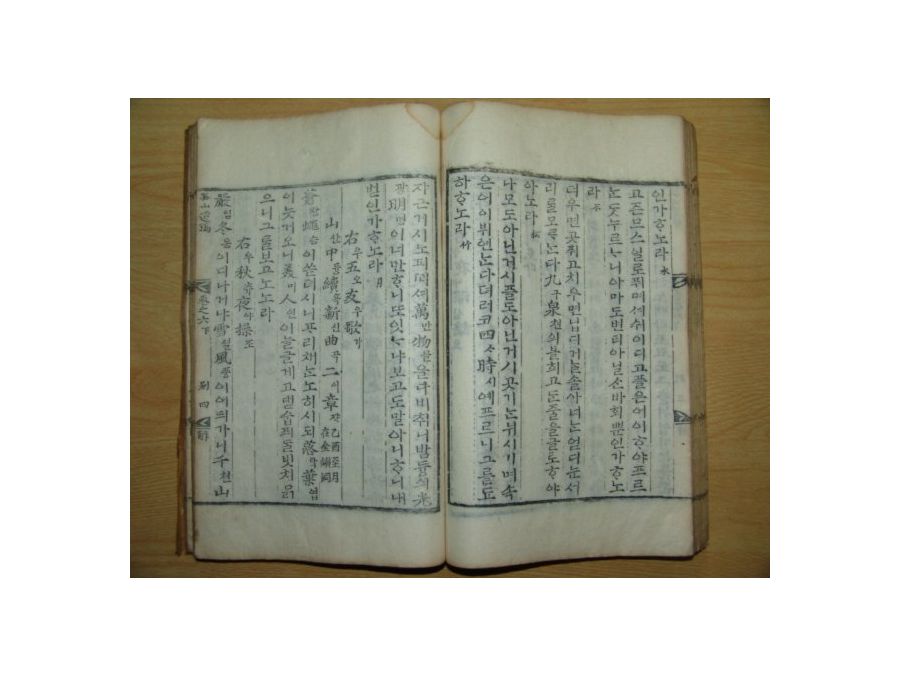 인가ᄒᆞ노라 水
고즌므스닐로퓌며셔쉬이디고플은어이ᄒᆞ야프르
ᄂᆞᆫᄃᆞᆺ누르ᄂᆞ니아마도변티아닐ᄉᆞᆫ바회ᄲᅮᆫ인가ᄒᆞ노
라 石
더우면곳퓌고치우면닙디거ᄂᆞᆯ솔아너ᄂᆞᆫ얻디눈서
리ᄅᆞᆯ모ᄅᆞᄂᆞᆫ다九구泉쳔의불희고ᄃᆞᆫ줄을글로ᄒᆞ야
아노라 松
나모도아닌거시플도아닌거시곳기ᄂᆞᆫ뉘시기며속
은어이뷔연ᄂᆞᆫ다뎌러코四ᄉᆞ時시예프르니그를됴
하ᄒᆞ노라 竹
쟈근거시노피ᄯᅥ셔萬만物믈을다비취니밤듕의光
광明명이너만ᄒᆞ니ᄯᅩ잇ᄂᆞ냐보고도말아니ᄒᆞ니내
벋인가ᄒᆞ노라 月
右우五오友우歌가
山산中듕續쇽新신曲곡二이章쟝 乙酉至月在金鎖洞
蒼창蠅승이ᄡᅳᆫ뎌시니ᄑᆞ리채ᄂᆞᆫ노히시되落락葉엽
이늣거오니美미人인이늘글게고댇숩픠ᄃᆞᆯ빗치ᄆᆞᆰ
으니그ᄅᆞᆯ보고노노라
右우秋츄夜야操조
嚴엄冬동이디나거냐雪셜風풍이어듸가니千쳔山
孤山遺稿 卷之六下 別 四